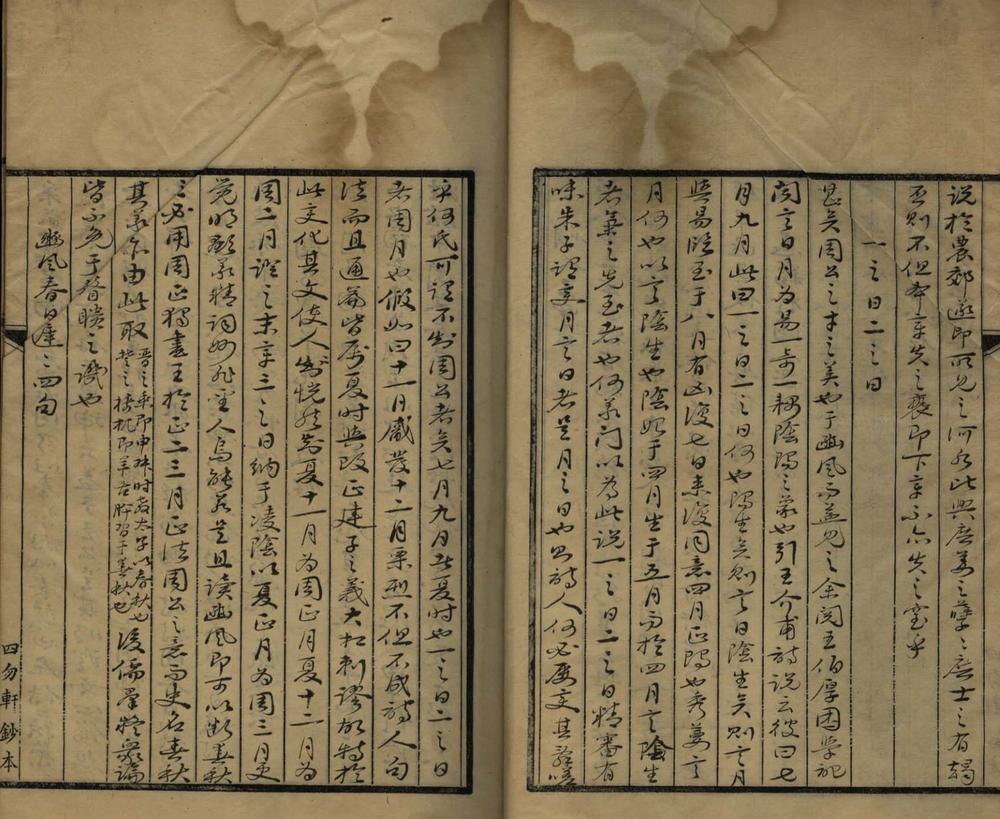 說於農郊遂即所見之河水此與庶姜之孽孽庶士之有朅
否則不但本章失之褻即下章亦失之室乎
一之日二之日
甚矣周公之才之美也于豳風而益見之余閱王伯厚困學記
聞言日月為易一奇一耦陰陽之象也引王介甫詩說云彼曰七
月九月此曰一之日二之日何也陽生矣則言日陰生矣則言月
與易臨至于八月有凶復七日來復同意四月正陽也秀葽言
月何也以言陰生也陰始于四月生于五月而於四月言陰生
者葽之先至者也何義門以為此說一之日二之日精審有
味朱子謂變月言日者是月之日也則詩人何必屢變其
乎何氏可謂不知周公者矣七月九月此夏時也一之日二之日
者周月也假如曰十一月觱發十二月栗烈不但不成詩人句
法而且通篇皆屬夏時與改正建子之義大相刺謬故特於
此變化其文使人知恍然於夏十一月為周正月夏十二月為
周二月證之末章三之日納于凌陰以夏正月為周三月更
覺明顯義精詞妙非聖人烏能若是且讀豳風即可以斷春秋
之必用周正獨書王於正二三月正法周公之意而史名春秋
其義亦由此取晉之乘即申叔時教太子以春秋也楚之檮杌即羊舌肸習于春秋也後儒羣疑衆論
皆不免于瞀瞶之譏也
豳風春日遲遲四句
四勿軒鈔本